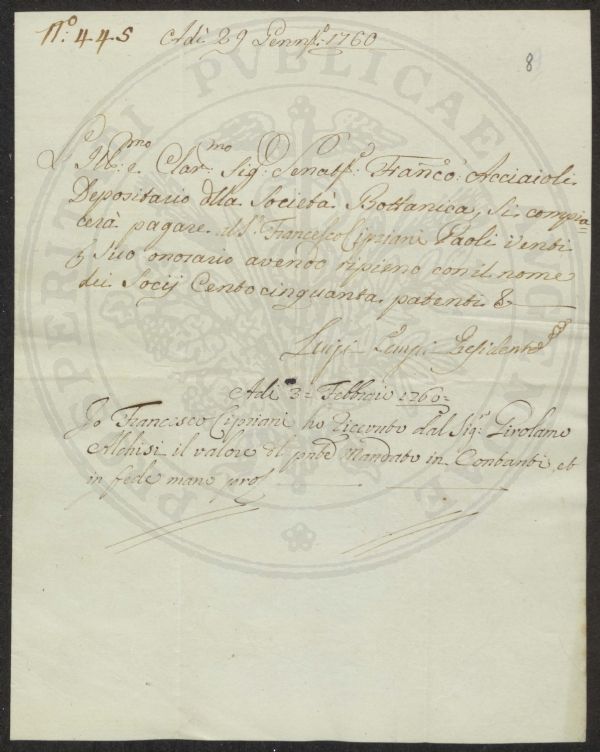 N.º 445
Adì 29 Genn.º 1760
8
L'Ill:mo e Clar:mo Sig: Senat:e Franc.º Acciaioli
Depositario della Società Bottanica, si compia
cerà pagare al S.r Francesco Cipriani Paoli venti
p suo onorario avendo ripieno con il nome
dei Socij Centocinquanta patenti &
Luigi Presidente
Adì 3= Febbraio 1760=
Io Francesco Cipriani ho ricevuto dal Sig.r Girolamo
Alchisi il valore del pnte Mandato in Contanti, et
in fede mano pro
PERITURAE PUBLICAE